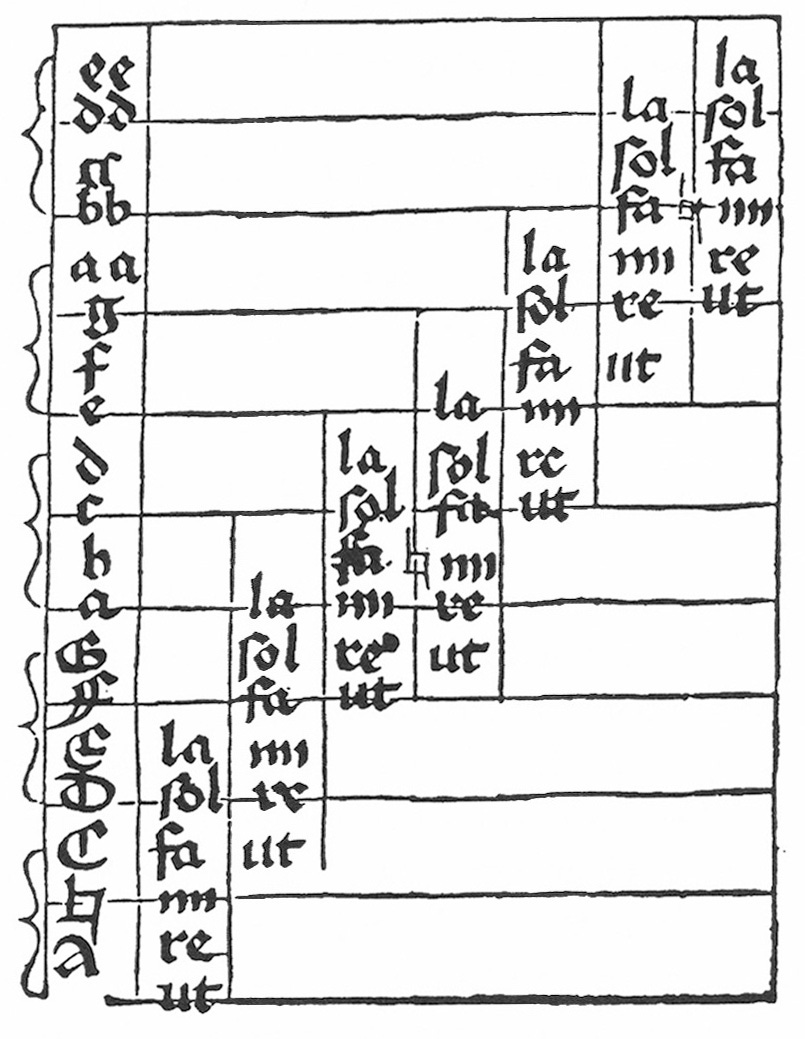 ee la
dd la sol
cc sol fa
bb fa ♮ mi
aa la mi re
g sol re ut
f fa ut
e la mi
d la sol re
c sol fa ut
b fa ♮ mi
a la mi re
G sol re ut
F fa ut
E la mi
D sol re
C fa ut
♮ mi
A re
ut